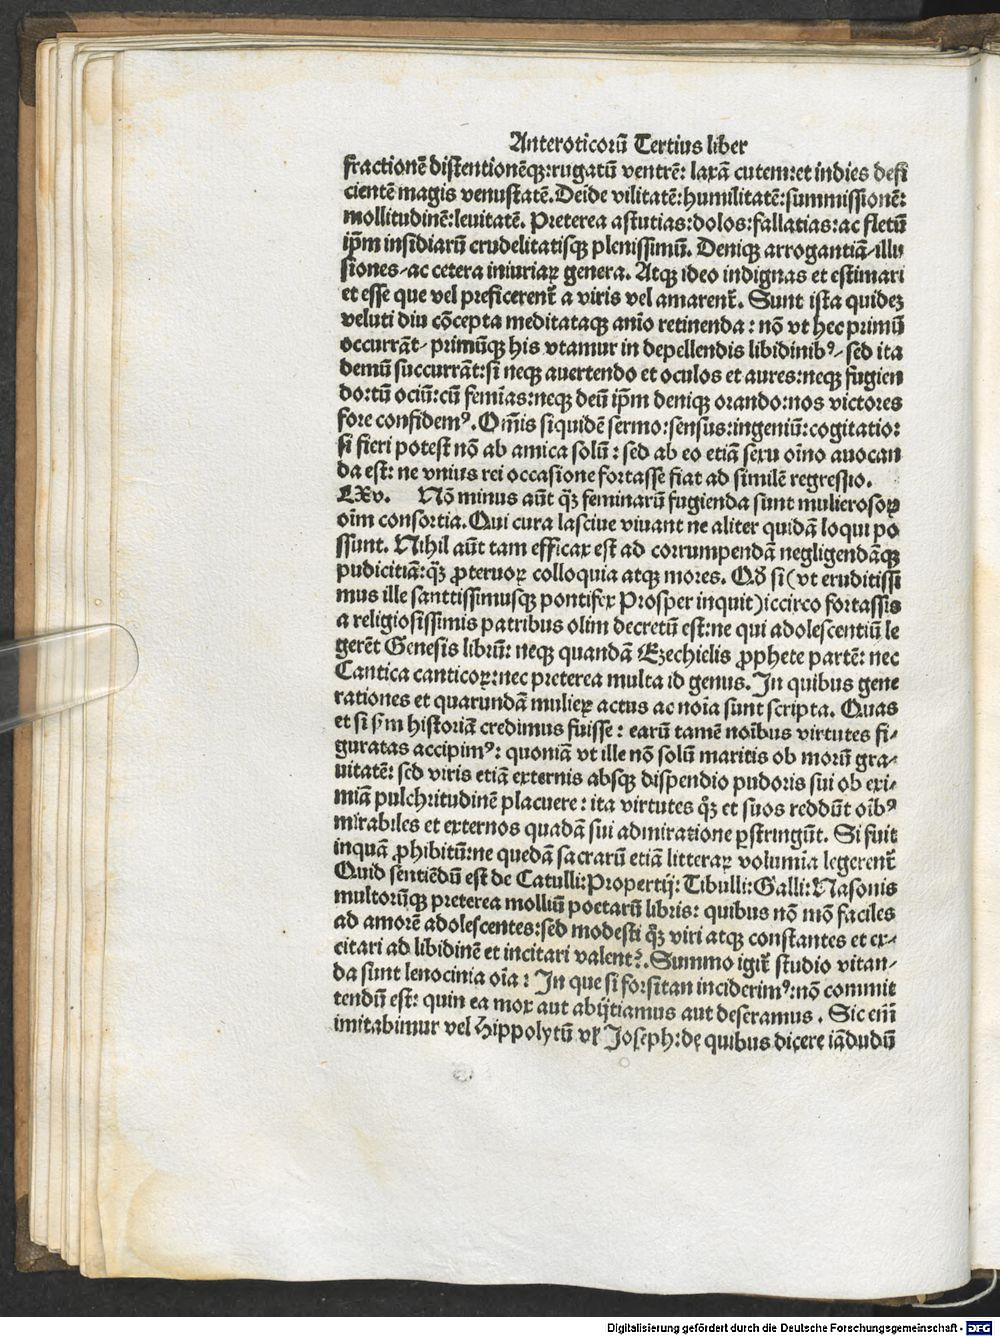 Anteroticorũ Tertius liber
fractionẽ distentionẽqꝫ:rugatũ ventrẽ: laxã cutem:et indies defi
cientẽ magis venustatẽ.Deĩde vilitatẽ:humilitatẽ:summissionẽ:
mollitudinẽ:leuitatẽ. Preterea astutias:dolos:fallatias:ac fletũ
ip̃m insidiarũ crudelitatisqꝫ plenissimũ. Deniqꝫ arrogantiã-illu
siones-ac cetera iniuriaꝝ genera. Atqꝫ ideo indignas et estimari
et esse que vel preficerent̃ a viris vel amarent̃. Sunt ista quideꝫ
veluti diu cõcepta meditataqꝫ anĩo retinenda: nõ vt hec primũ
occurrãt- primũqꝫ his vtamur in depellendis libidinibꝰ- sed ita
demũ succurrãt:si neqꝫ auertendo et oculos et aures:neqꝫ fugien
do:tũ ociũ:cũ femĩas:neqꝫ deũ ip̃m deniqꝫ orando:nos victores
fore confidemꝰ. Om̃is siquidẽ sermo:sensus:ingeniũ:cogitatio:
si fieri potest nõ ab amica solũ: sed ab eo etiã sexu oĩno auocan
da est: ne vnius rei occasione fortasse fiat ad similẽ regressio.
LXv. Nõ minus aũt qꝫ̃ feminarũ fugienda sunt mulierosoꝝ
oĩm consortia. Qui cura lasciue viuant ne aliter quidã loqui po
ssunt. Nihil aũt tam efficax est ad corrumpendã negligendãqꝫ
pudicitiã:qꝫ̃ ꝓteruoꝝ colloquia atqꝫ mores. Qꝺ si(vt eruditissi
mus ille santtissimusqꝫ pontifex Prosper inquit)iccirco fortassis
a religiosissimis patribus olim decretũ est:ne qui adolescentiũ le
gerẽt Genesis librũ: neqꝫ quandã Ezechielis ꝓphete partẽ: nec
Cantica canticoꝝ:nec preterea multa id genus. In quibus gene
rationes et quarundã mulieꝝ actus ac noĩa sunt scripta. Quas
et si s̃m historiã credimus fuisse: earũ tamẽ noĩbus virtutes fi-
guratas accipimꝰ: quoniã vt ille nõ solũ maritis ob morũ gra-
uitatẽ: sed viris etiã externis absqꝫ dispendio pudoris sui ob exi-
miã pulchritudinẽ placuere: ita virtutes qꝫ̃ et suos reddũt oĩbꝰ
mirabiles et externos quadã sui admiratione ꝑstringũt. Si fuit
inquã ꝓhibitũ:ne quedã sacrarũ etiã litteraꝝ volumĩa legerent̃
Quid sentiẽdũ est de Catulli:Propertij:Tibulli:Galli:Nasonis
multorũqꝫ preterea molliũ poetarũ libris: quibus nõ mõ faciles
ad amorẽ adolescentes:sed modesti qꝫ̃ viri atqꝫ constantes et ex-
citari ad libidinẽ et incitari valent?. Summo igit̃ studio vitan-
da sunt lenocinia oĩa: In que si forsitan inciderimꝰ:nõ commit
tendũ est: quin ea mox aut abijtiamus aut deseramus. Sic em̃
imitabimur vel Hippolytũ vł Joseph:de quibus dicere iãdudũ
Digitalisierung gefördert durch die Deutsche Forschungsgemeinschaft - DFG